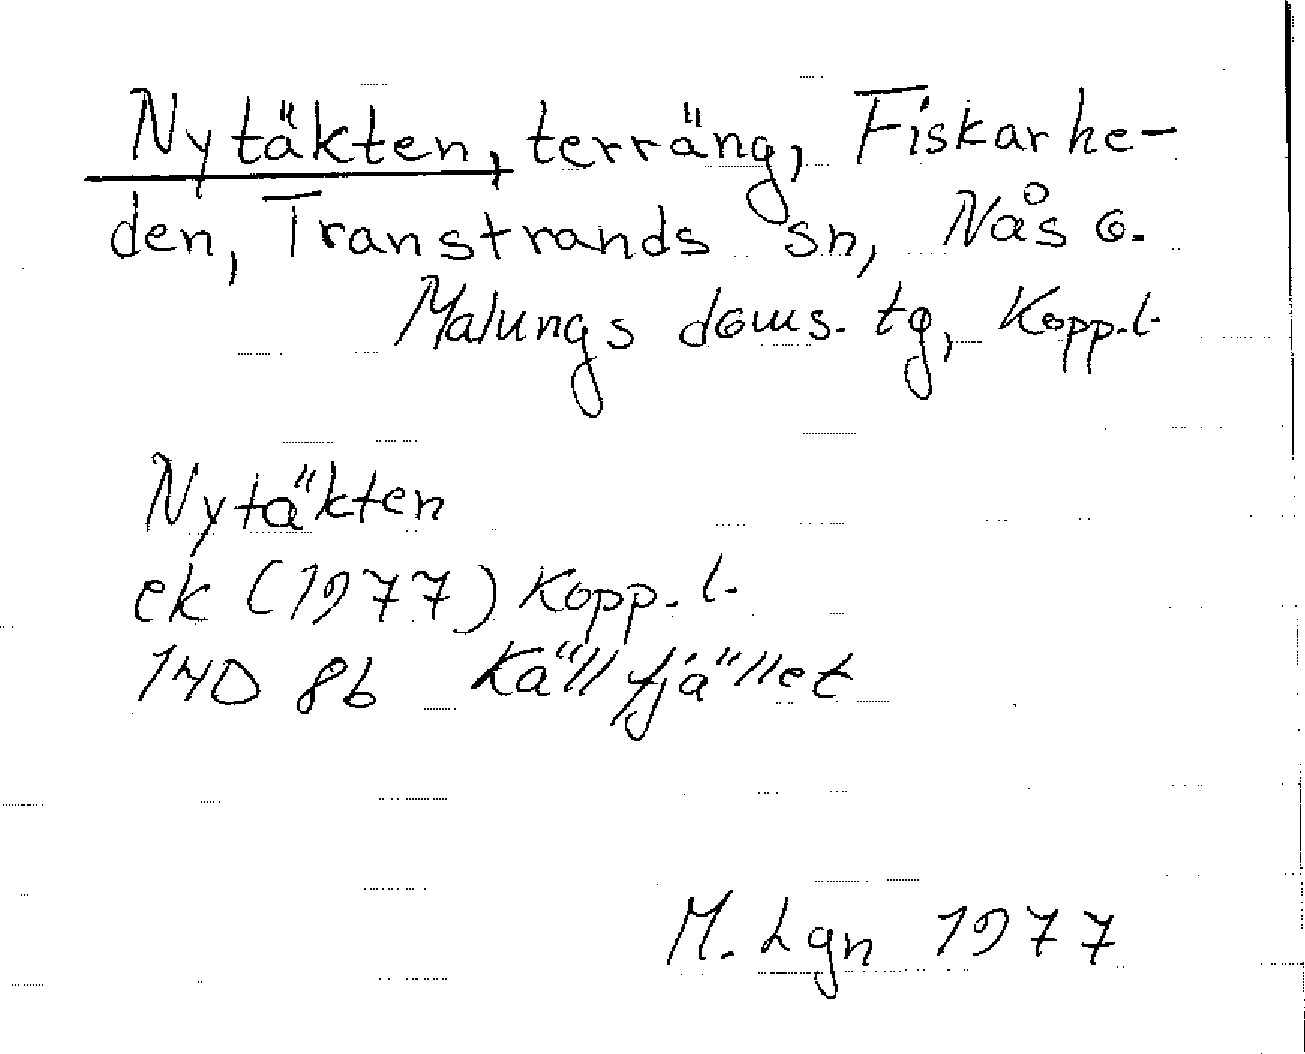 Nytäkten, terräng, Fiskarhe-
den, Transtrands sn, Nås o.
Malungs doms. tg, Kopp.l.
Nytäkten
ek (1977) Kopp. l.
14D 8b Källfjället
M. Lgn 1977